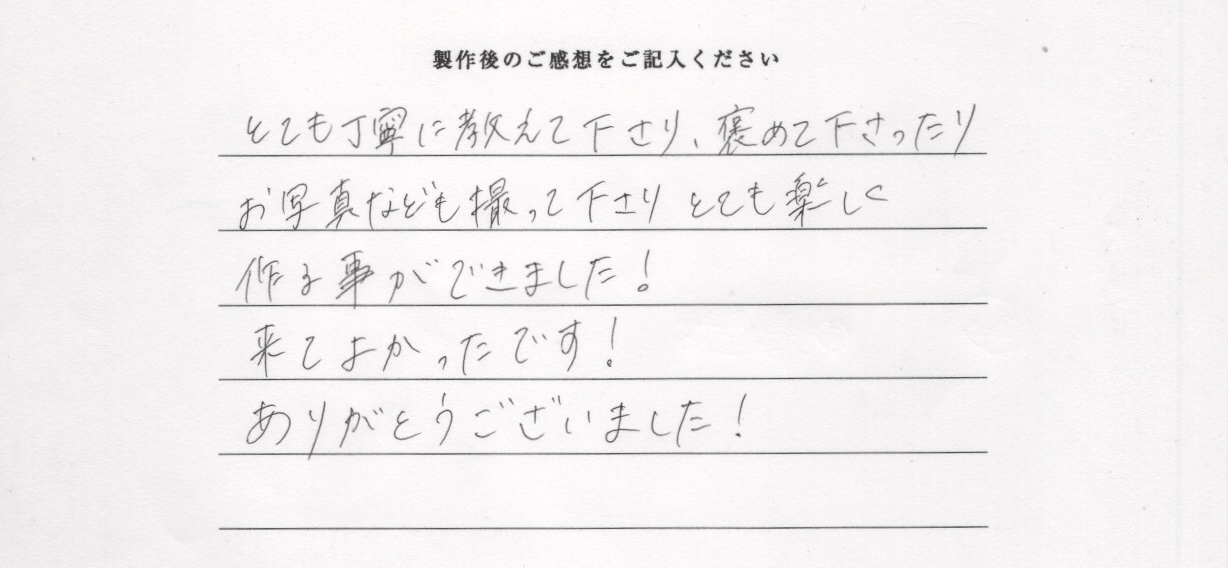 製作後のご感想をご記入ください
とても丁寧に教えて下さり、褒めて下さったり
お写真なども撮って下さり とても楽しく
作る事ができました!
来てよかったです!
ありがとうございました!